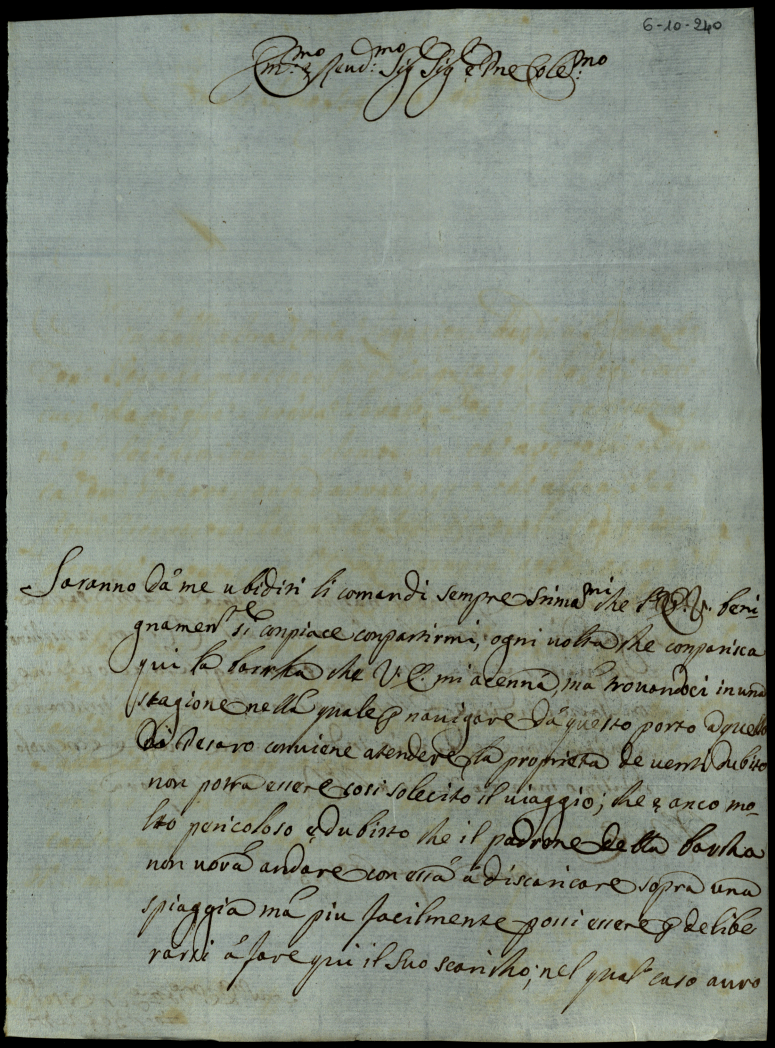 6-10-240
Em.mo e Reud.mo Sig.r Sig.r e Pne Cole.mo
Saranno dà me ubiditi li comandi sempre stima.mi che l'E. V. beni-
gnamente si conpiace conpartirmi, ogni uolta che conparisca
qui la barkha che V. E. mi acenna, mà trouandoci in una
stagione nella quale p nauigare dà questo porto a quello
di Pesaro conuiene atendere la proprieta de uenti dubito
non potra essere cosi solecito il uiaggio; che è anco mo-
lto pericoloso e dubitto che il padrone della barcha
non uorà andare con essa à discaricare sopra una
spiaggia mà piu facilmente possi essere p delibe
rarsi à fare qui il suo scaricho; nel qual caso auro